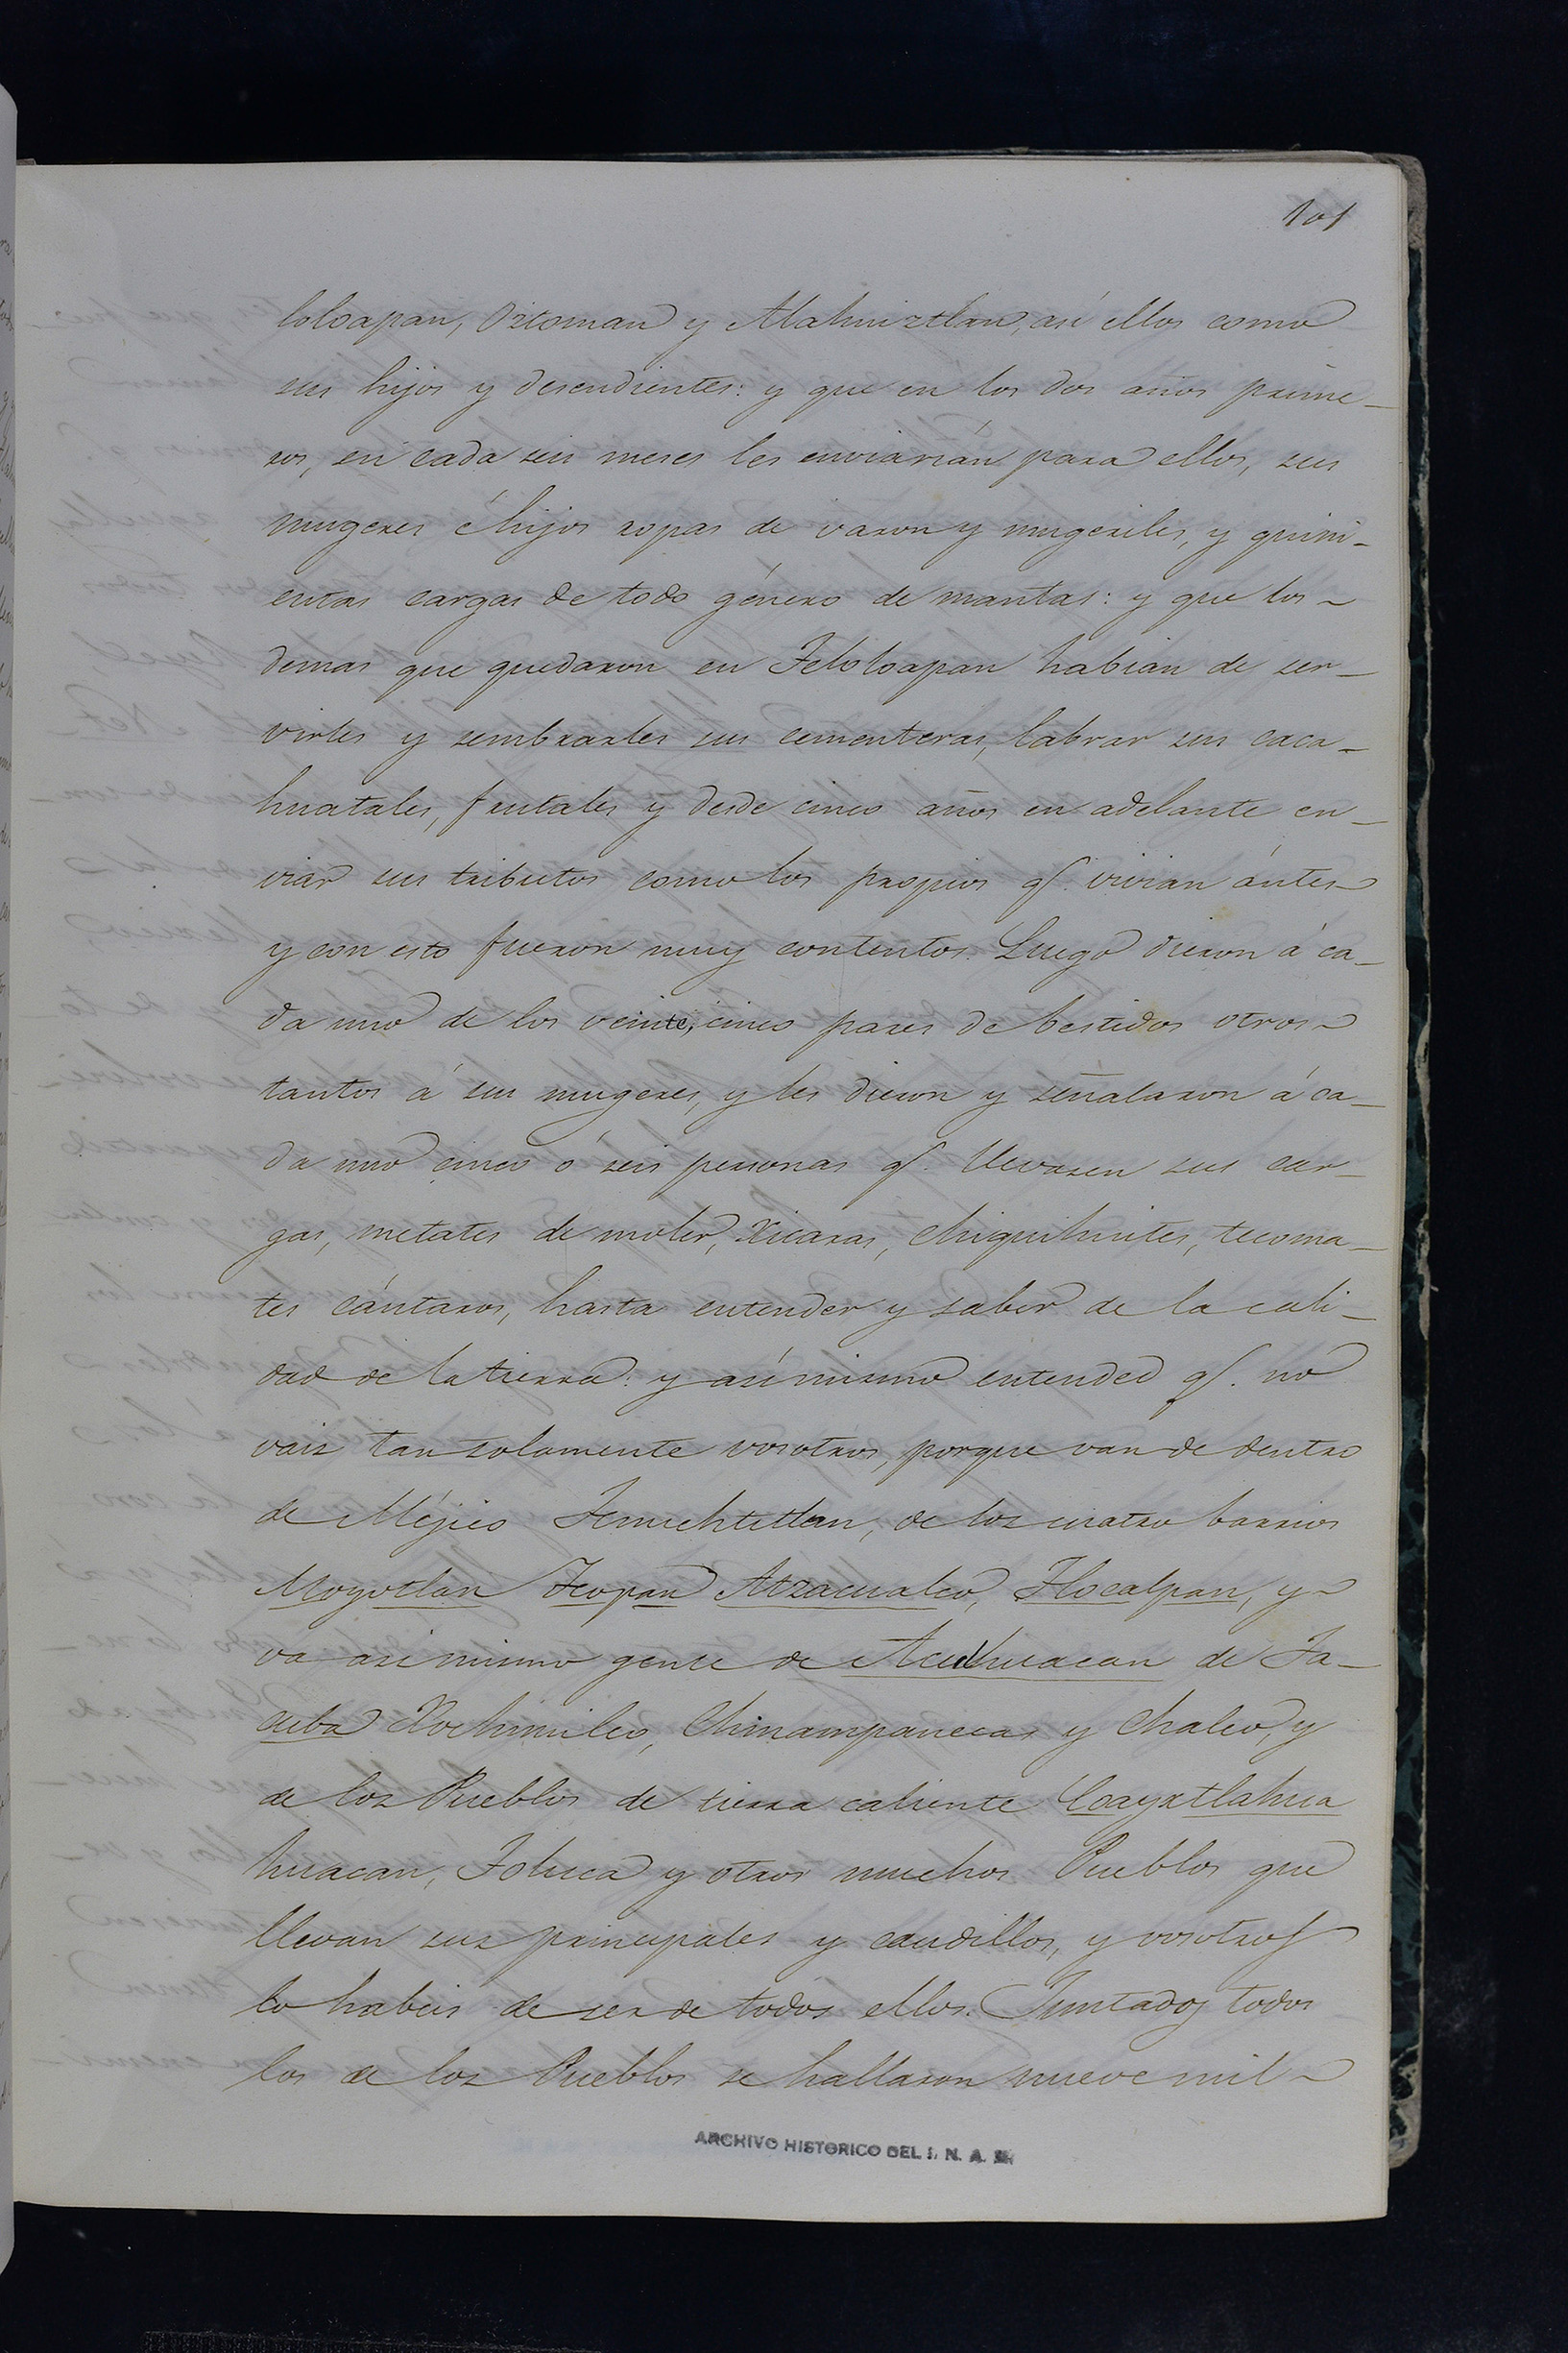 101
loloapan, Oztoman y Alahuiztlan, asi ellos como
sus hijos y desendientes: y que en los dos años prime-
ros, en cada seis meses les enviarían para ellos, sus
mugeres é hijos ropas de varon y mugeriles, y quini-
entas cargas de todo género de mantas: y que los
demas que quedaron en Teloloapan habian de ser-
virles y sembrarles sus cementeras, labrar sus caca-
huatales, frutales y desde cinco años en adelante en-
viar sus tributos como los propios q. vivian ántes
y con esto fueron muy contentos. Luego dieron á ca-
da uno de los veinte, cinco pares de bestidos otros
tantos á sus mugeres, y les dieron y señalaron á ca-
da uno cinco ó seis personas q. llevasen sus car-
gas, metates de moler, Xicaras, chiquihuites, tecoma-
tes cántaros, hasta entender y saber de la cali-
dad de la tierra: y asi mismo entended q. no
vais tan solamente vosotros, porque van de dentro
de Méjico Tenuchtitlan, de los cuatro barrios
Moyotlan Teopan Atzacualco, Tlocalpan, y
va asi mismo gente de Aculhuacan de Ta-
cuba Xochimilco, Chinampanecas y Chalco, y
de los Pueblos de tierra caliente Coayxtlahua
huacan, Toluca y otros muchos Pueblos que
llevan sus principales y caudillos, y vosotros
lo habeis de ser de todos ellos. Juntados todos
los de los Pueblos se hallaron nueve mil
ARCHIVO HISTORICO DEL I. N. A. H.